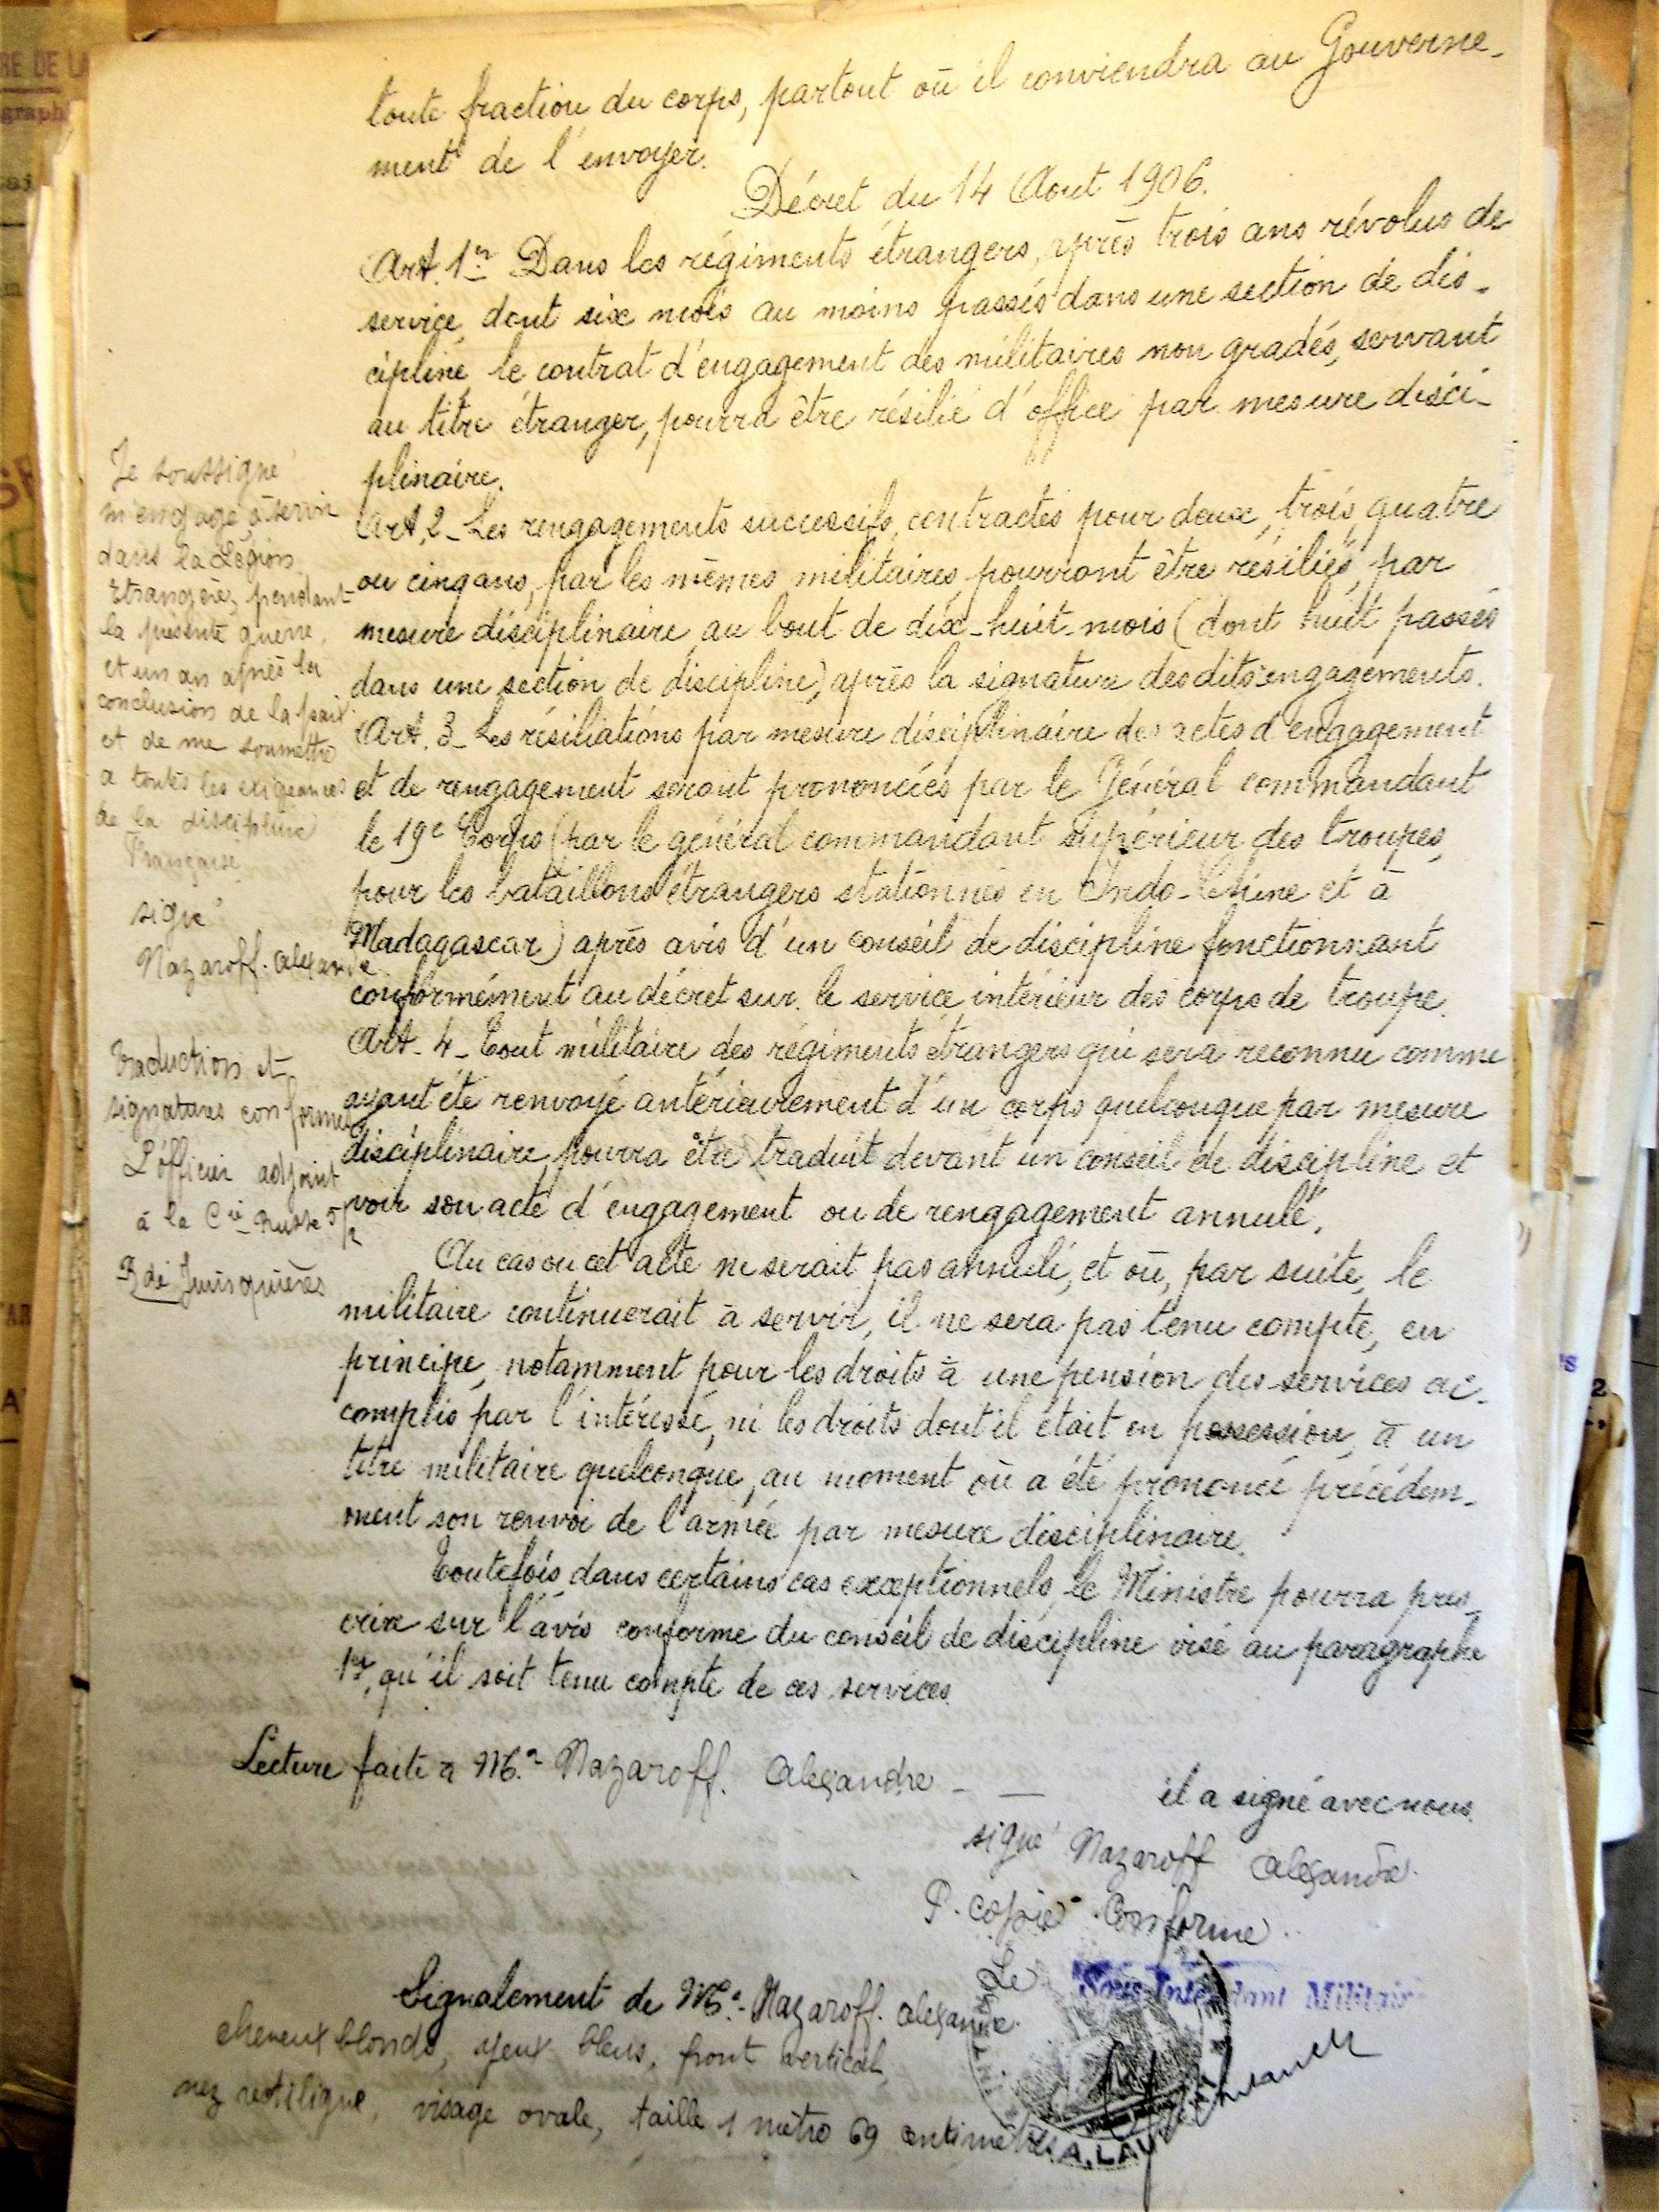 toute fraction du corps, partout où il conviendra au Gouverne-
ment de l'envoyer.
Décret du 14 Aout 1906.
Art. 1er Dans les régiments étrangers, après trois ans révolus de
service, dont six mois au moins passés dans une section de dis-
cipline, le contrat d'engagement des militaires non gradés, servant
au titre étranger, pourra être résilié d'office par mesure disci-
plinaire.
Art. 2 - Les rengagements successifs, contractés pour deux, trois, quatre
ou cinq ans, par les mêmes militaires, pourront être résiliés, par
mesure disciplinaire, au bout de dix-huit-mois (dont huit passés
dans une section de discipline), après la signature desdits engagements.
Art. 3 - Les résiliations par mesure disciplinaire des actes d'engagement
et de rengagement seront prononcées par le Général commandant
le 19e Corps (par le général commandant supérieur des troupes,
pour les bataillons étrangers stationnés en Indo-Chine et à
Madagascar) après avis d'un conseil de discipline fonctionnant
conformément au décret sur le service intérieur des corps de troupe.
Art - 4 - Tout militaire des régiments étrangers qui sera reconnu comme
ayant été renvoyé antérieurement d'un corps quelconque par mesure
disciplinaire, pourra être traduit devant un conseil de discipline et
voir son acte d'engagement ou de rengagement annulé.
Au cas ou cet acte ne serait pas annulé, et où, par suite, le
militaire continuerait à servir, il ne sera pas tenu compte, en
principe, notamment pour les droits à une pension des services ac-
complis par l'intéressé, ni les droits dont il était en possession, à un
titre militaire quelconque, au moment où a été prononcé précédem-
ment son renvoi de l'armée par mesure disciplinaire.
Toutefois, dans certains cas exceptionnels, le Ministre pourra pres-
crire sur l'avis conforme du conseil de discipline visé au paragraphe
1er, qu'il soit tenu compte de ces services.
Je soussigné
m'engage à servir
dans la Légion
Etrangère, pendant
la présente guerre,
et un an après la
conclusion de la paix
et de me soumettre
a toutes les exigeances
de la discipline
Française
signé
Nazaroff. Alexandre
Traduction et
signatures conformes
L'officier adjoint
à la Cie Russe
Lecture faite à Mr. Nazaroff. Alexandre - — il a signé avec nous.
signé Nazaroff Alexandre.
P. copie Conforme.
Le Sous-Intendant Militaire
Signalement de Mr. Nazaroff. Alexandre.
cheveux blonds, yeux bleus, front vertical,
nez rectiligne, visage ovale, taille 1 mètre 69 centimètres